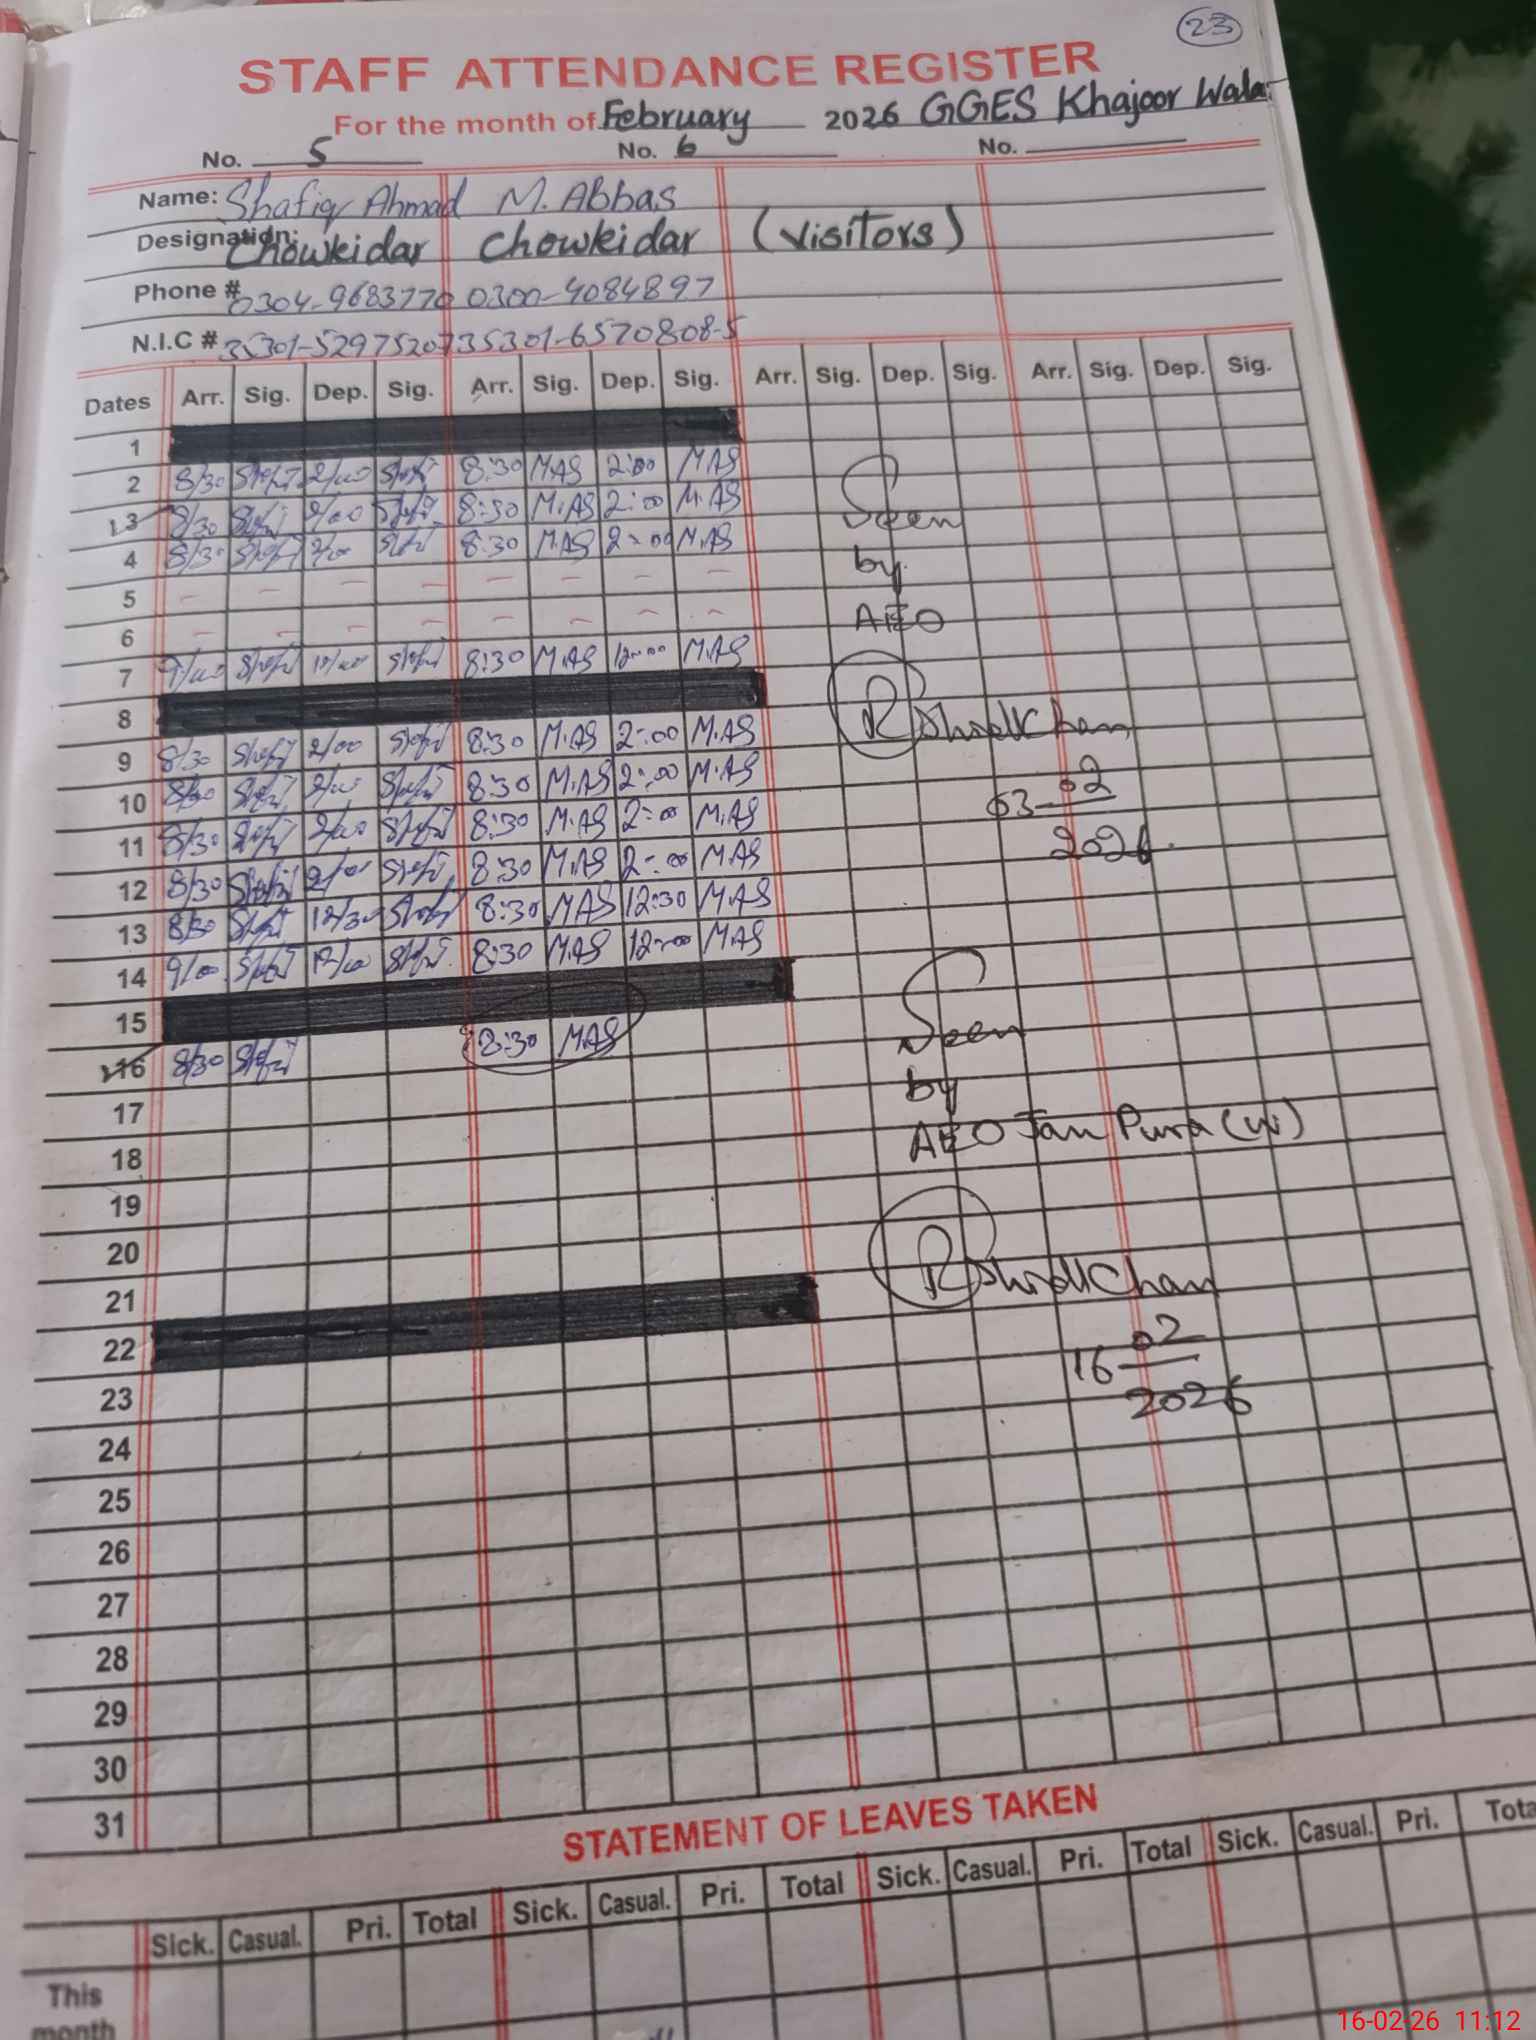 23
STAFF ATTENDANCE REGISTER
For the month of February 2026 GGES Khajoor Wala
No. 5 No. 6 No.
Name: Shafiq Ahmad M. Abbas
Designation: Chowkidar Chowkidar (visitors)
Phone # 0304-9683770 0300-4084897
N.I.C # 35301-5297520735301-6570808-5
Dates Arr. Sig. Dep. Sig. Arr. Sig. Dep. Sig. Arr. Sig. Dep. Sig. Arr. Sig. Dep. Sig.
1
2 8/30 2/00 8:30 MAS 2:00 MAS
3 8/30 2/00 8:30 M.AS 2:00 M.AS
Seen
4 8/30 2/00 8:30 MAS 2:00 MAS
by
5 – – – – – – – –
AEO
6 – – – – – – – –
7 9/00 12/00 8:30 M.AS 12:00 M.AS
8
9 8/30 2/00 8:30 M.AS 2:00 M.AS
10 8/30 2/00 8:30 M.AS 2:00 M.AS
03-02
11 8/30 2/00 8:30 M.AS 2:00 M.AS
2026
12 8/30 2/00 8:30 M.AS 2:00 MAS
13 8/30 12/30 8:30 MAS 12:30 M.AS
14 9/00 12/00 8:30 M.AS 12:00 M.AS
15
Seen
16 8/30 8:30 MAS
by
17
AEO Jan Pura (W)
18
19
20
21
22
16-02
2026
23
24
25
26
27
28
29
30
31
STATEMENT OF LEAVES TAKEN
Sick. Casual. Pri. Total Sick. Casual. Pri. Total Sick. Casual. Pri. Total Sick. Casual. Pri. Tota
This
month
16-02-26 11:12